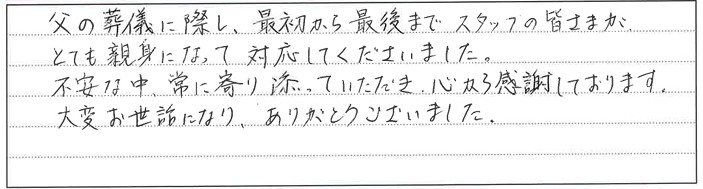 父の葬儀に際し、最初から最後までスタッフの皆さまが、
とても親身になって対応してくださいました。
不安な中、常に寄り添っていただき、心から感謝しております。
大変お世話になり、ありがとうございました。